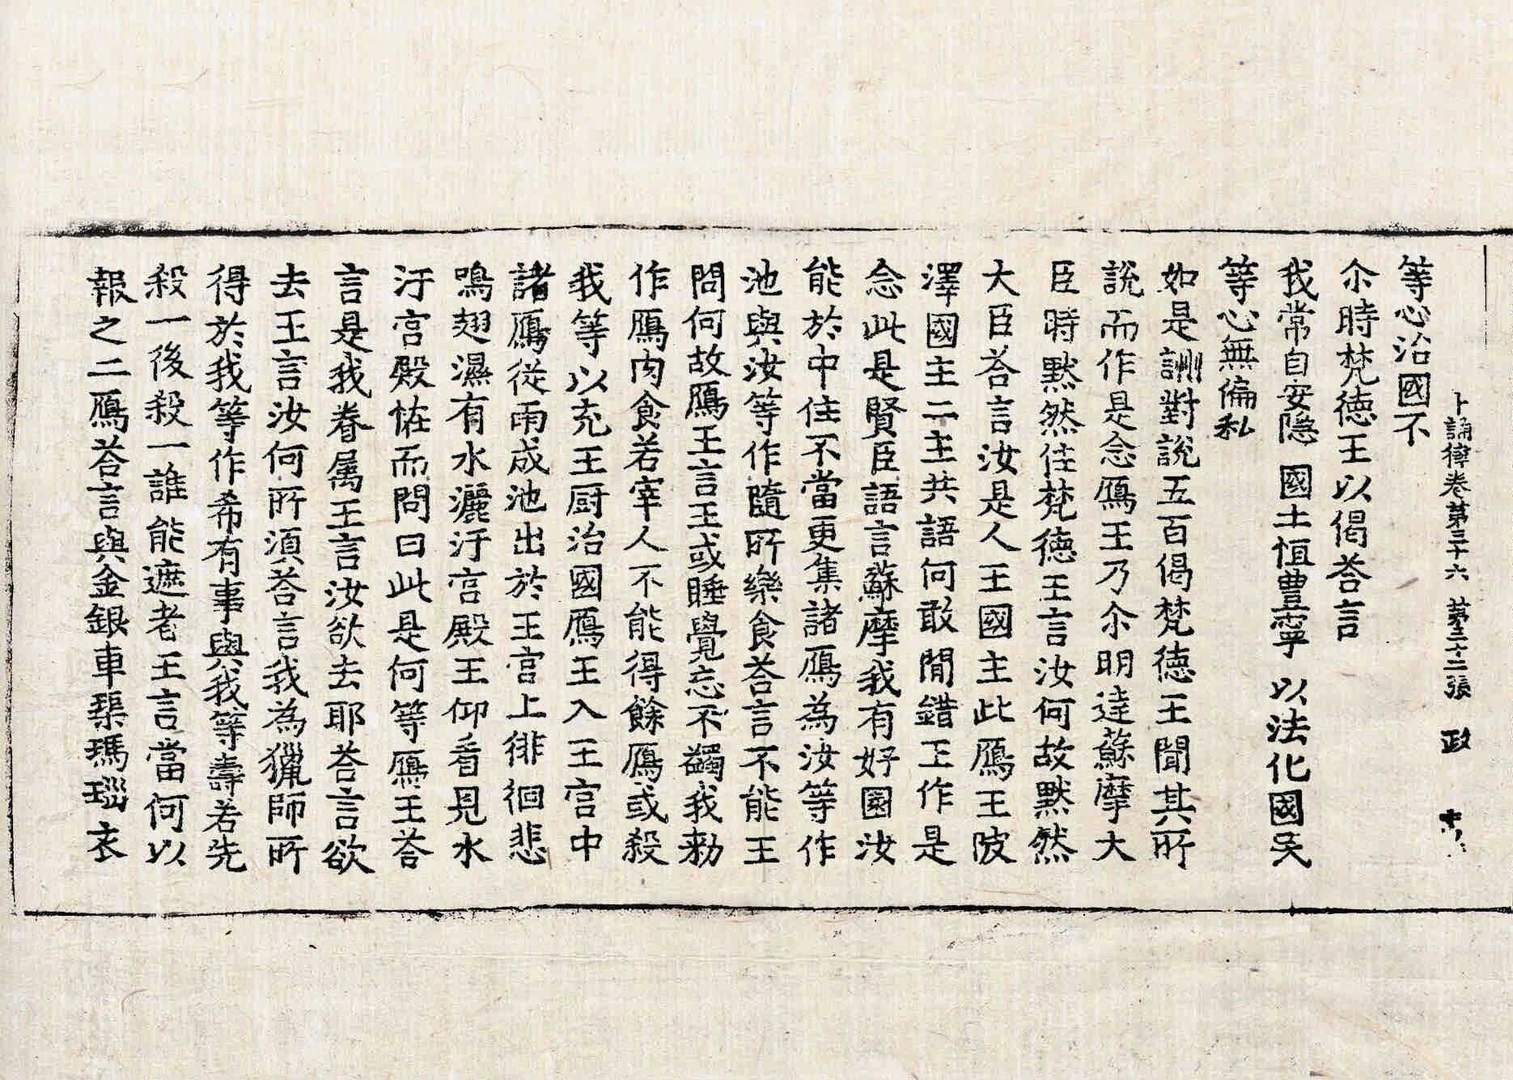 十誦律卷第三十六　第三十二張　政
等心治國不
尒時梵德王以偈荅言
我常自安隱　國土恒豊寧　以法化國民
等心無偏私
如是詶對說五百偈梵德王聞其所
說而作是念鴈王乃尒明達蘇摩大
臣時黙然住梵德王言汝何故黙然
大臣荅言汝是人王國主此鴈王陂
澤國主二主共語何敢間錯王作是
念此是賢臣語言蘇摩我有好園汝
能於中住不當更集諸鴈為汝等作
池與汝等作隨所樂食荅言不能王
問何故鴈王言王或睡覺忘不蠲我勑
作鴈肉食若宰人不能得餘鴈或殺
我等以充王厨治國鴈王入王宮中
諸鴈從雨成池出於王宮上徘徊悲
鳴翅濕有水灑汙宮殿王仰看見水
汙宮殿恠而問曰此是何等鴈王荅
言是我眷属王言汝欲去耶荅言欲
去王言汝何所須荅言我為獵師所
得於我等作希有事與我等壽若先
殺一後殺一誰能遮者王言當何以
報之二鴈荅言與金銀車璖瑪瑙衣